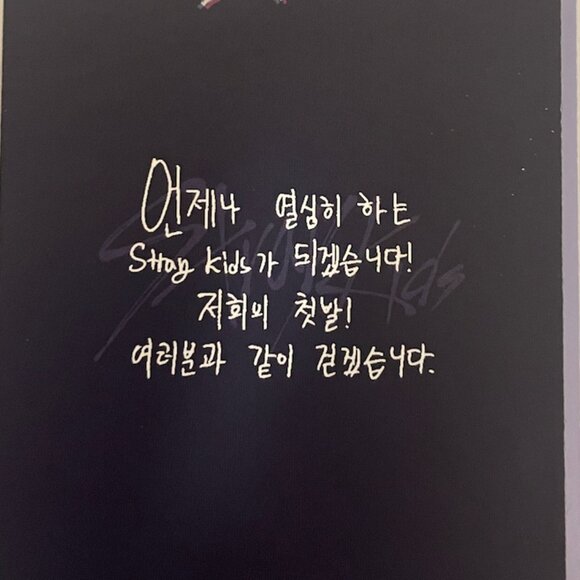 언제나 열심히 하는
Stray Kids가 되겠습니다!
저희의 첫발!
여러분과 같이 걷겠습니다.
Stray Kids